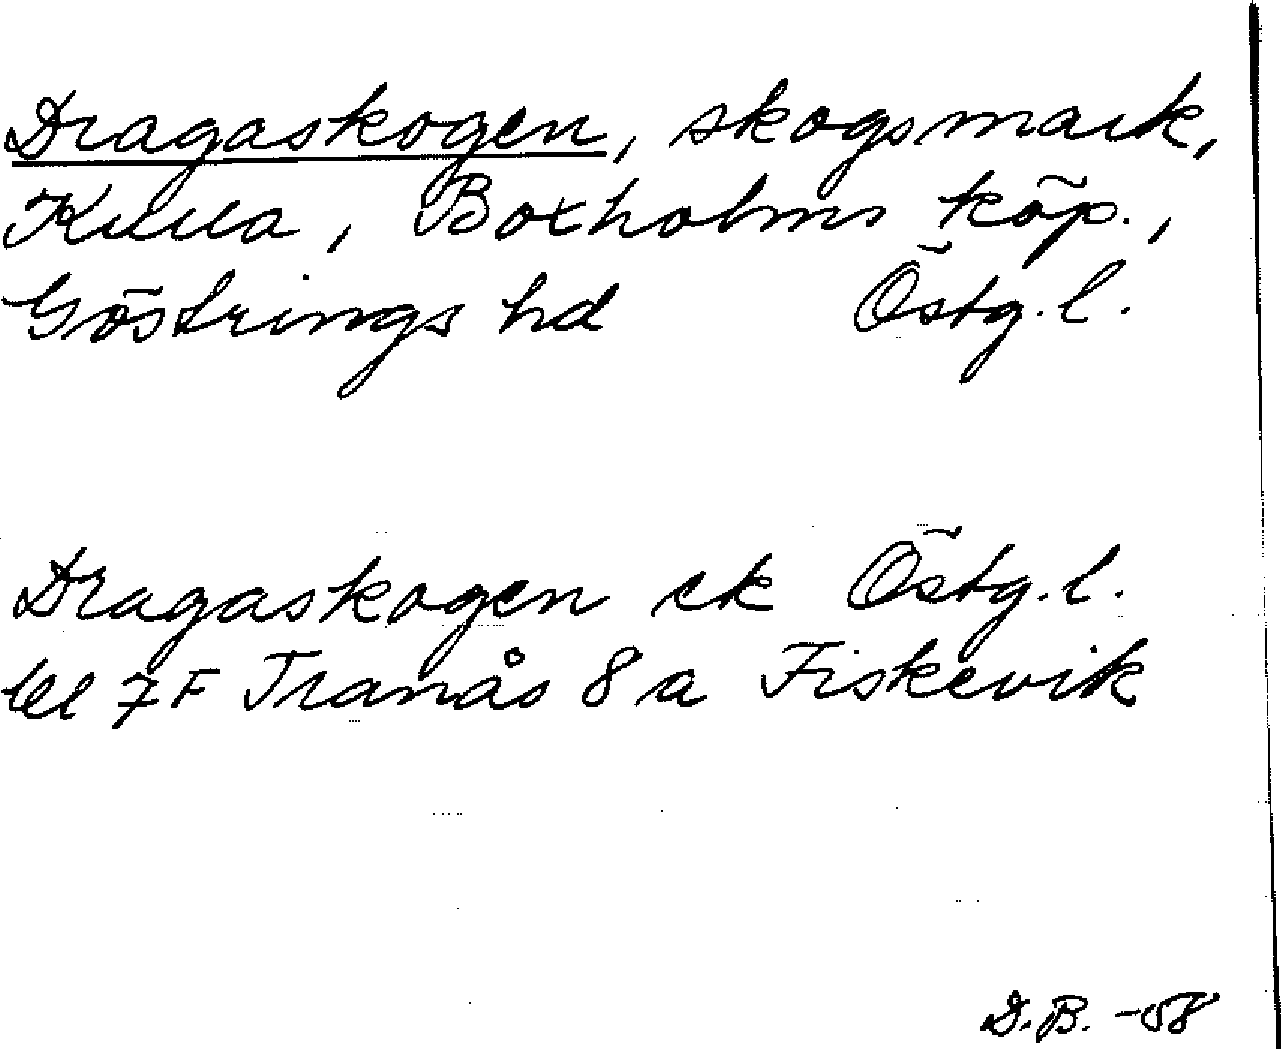 Dragaskogen, skogsmark,
Kulla, Boxholms köp.,
Göstrings hd Östg.l.
Dragaskogen ek Östg.l.
bl 7F Tranås 8a Fiskevik
D.B. -58